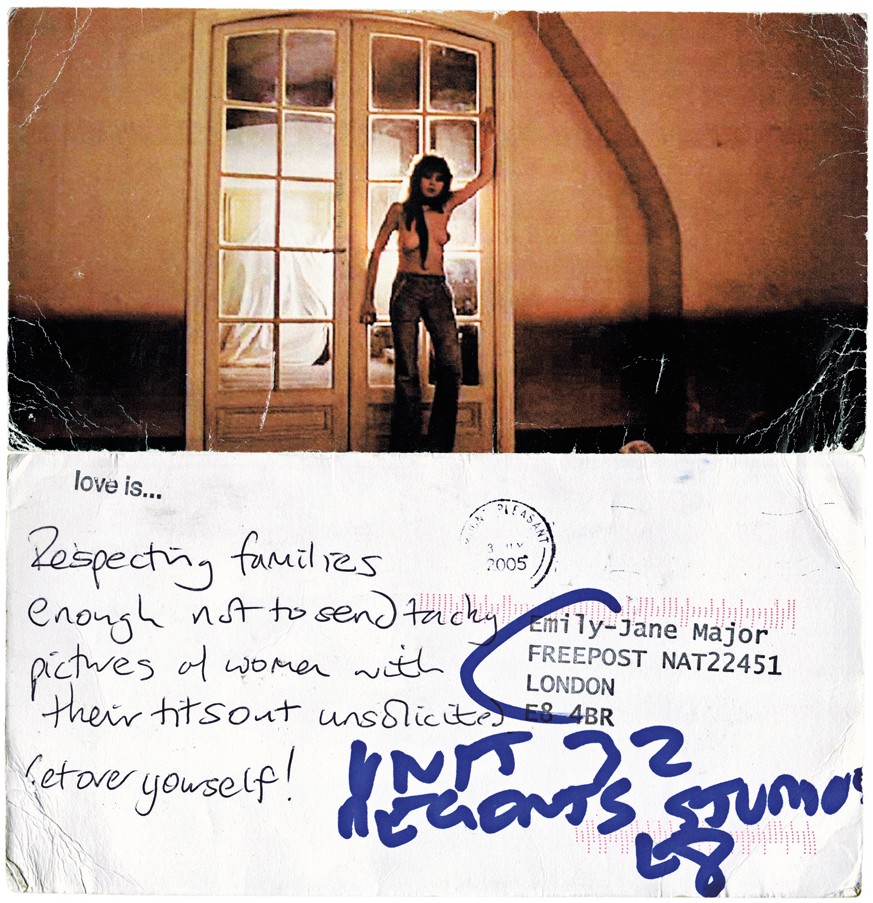 love is...
Respecting families
enough not to send tacky
pictures of women with
their tits out unsolicited
Get over yourself!
PLEASANT
2005
Emily-Jane Major
FREEPOST NAT22451
LONDON
E8 4BR
UNIT 72
REGENTS STUDIOS
E8